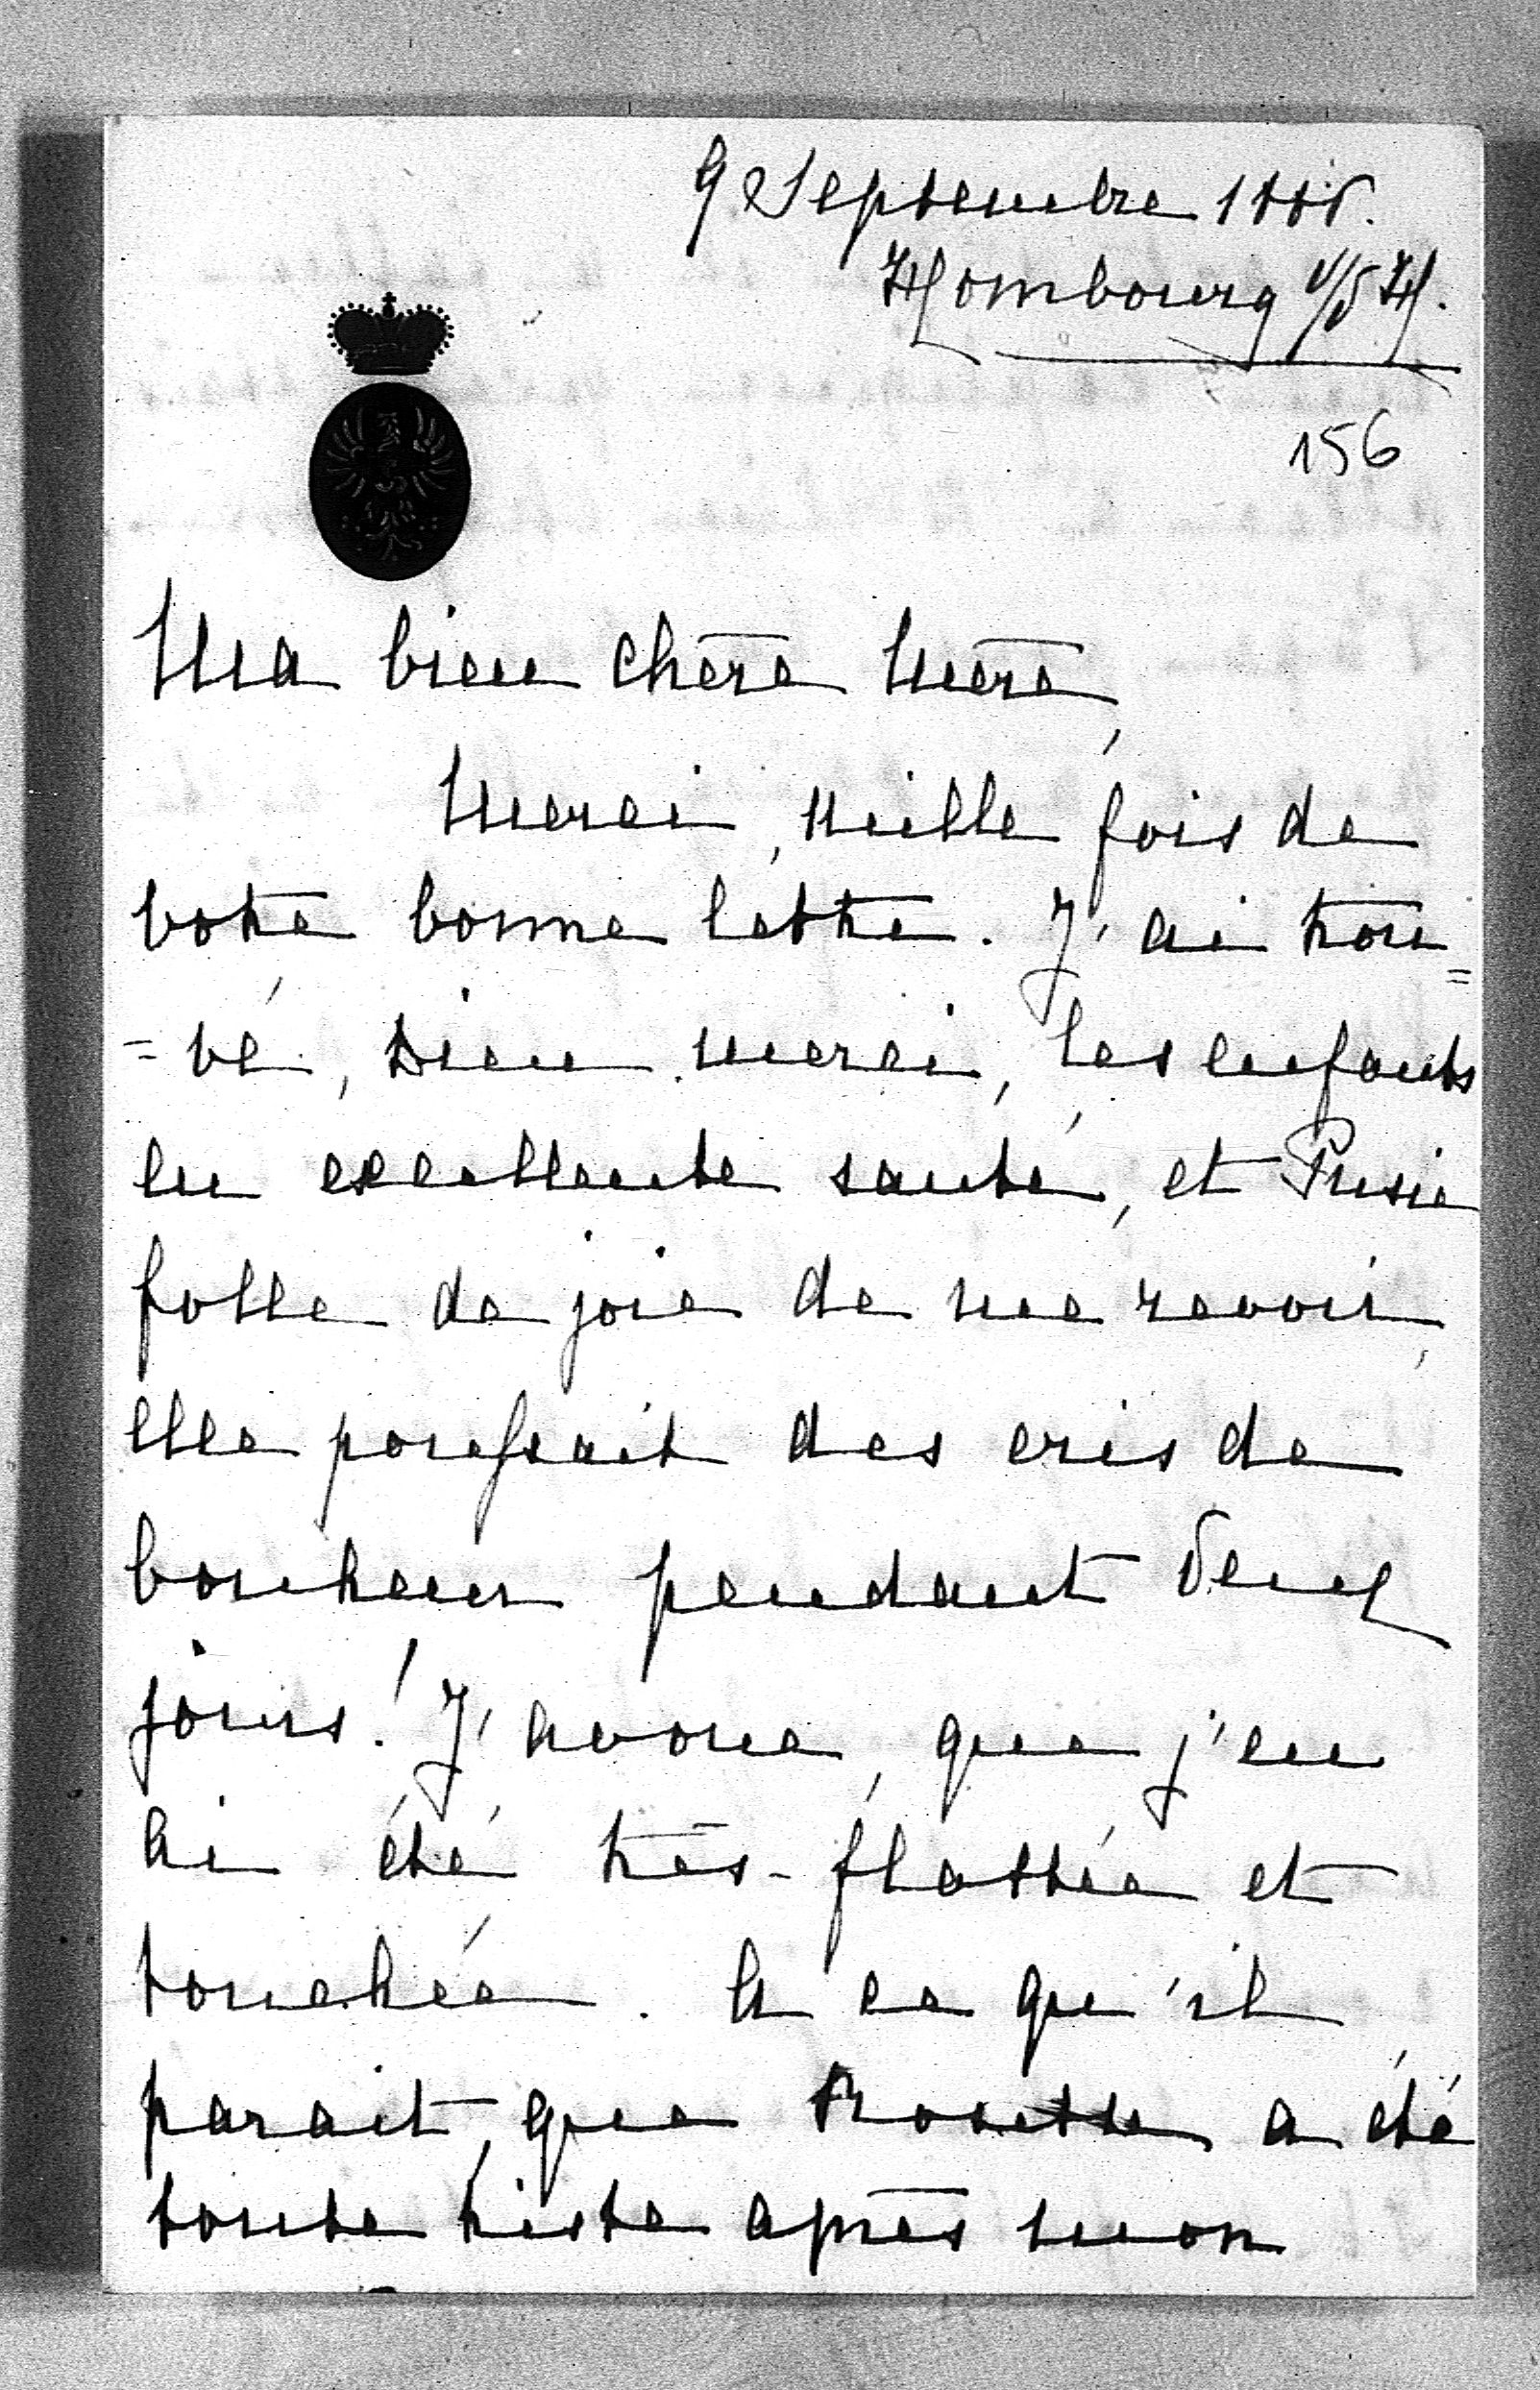 9 Septembre 188
Hombourg v/d H.
156
Ma bien chère Mère,
Merci, mille fois de
votre bonne lettre. J'ai trou=
=vé, Dieu merci, les enfants
en excellente santé, et
folle de joie de me revoir,
elle poussait des cris de
bonheur pendant deux
jours! J'avoue, que j'en
ai été très-flattée et
touchée. A ce qu'il
parait, que Rosette a été
toute triste après mon